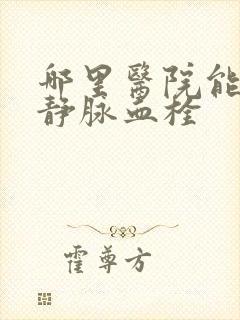 哪里醫院能
静脉血栓
霍尊方